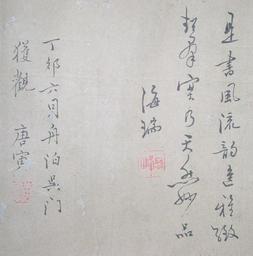 是書風流韵遠雅緻
超羣實乃天然妙品
海瑞
丁卯六月舟泊吳门
獲觀 唐寅